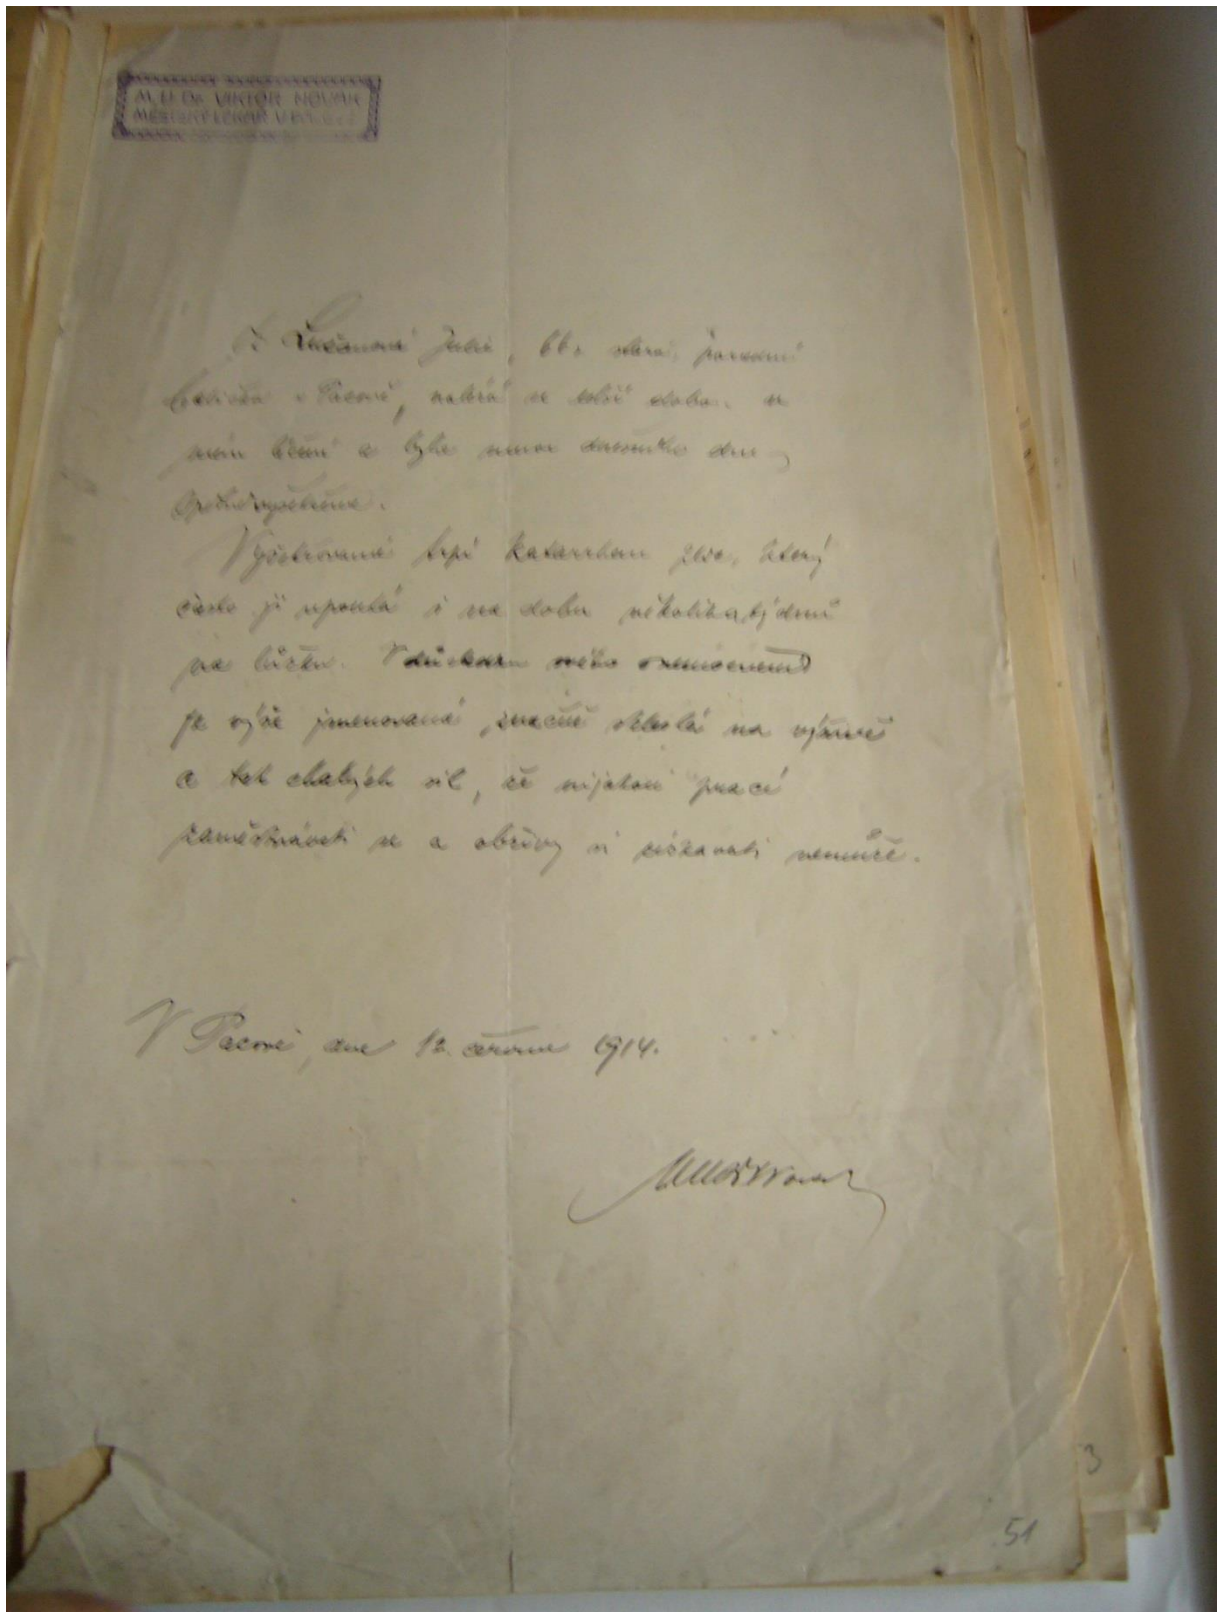 M. U. Dr. VIKTOR NOVÁK
MĚSTSKÝ LÉKAŘ V
Julie, 66. stará, porodní
v Pacově, nalézá se delší dobu. v
mém léčení a byla mnou dnešního dne
Vyšetřovaná trpí katarrhem plic, který
často ji upoutá i na dobu několika týdnů
na lůžko. V důsledku svého onemocnění
je výše jmenovaná značně sešlá na výživě
a tak chabých sil, že nijakou prací
zaměstnávati se a obživy si získávati nemůže.
V Pacově, dne 12. června 1914.
MUDr Novák
3
51